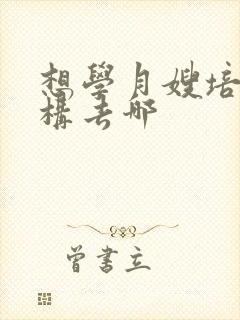 想學月嫂培
構去哪
曾書立